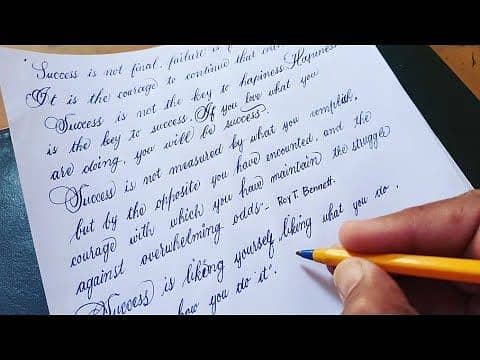 "Success is not final, failure is
It is the courage to continue that
Success is not the key to hapiness. Hapiness
is the key to success. If you love what you
are doing, you will be success".
Success is not measured by what you complish,
but by the opposite you have encounted, and the
courage with which you have maintain the struggle
against overwhelming odds - Roy T. Bennett.
Success is liking yourself, liking what you do,
how you do it".